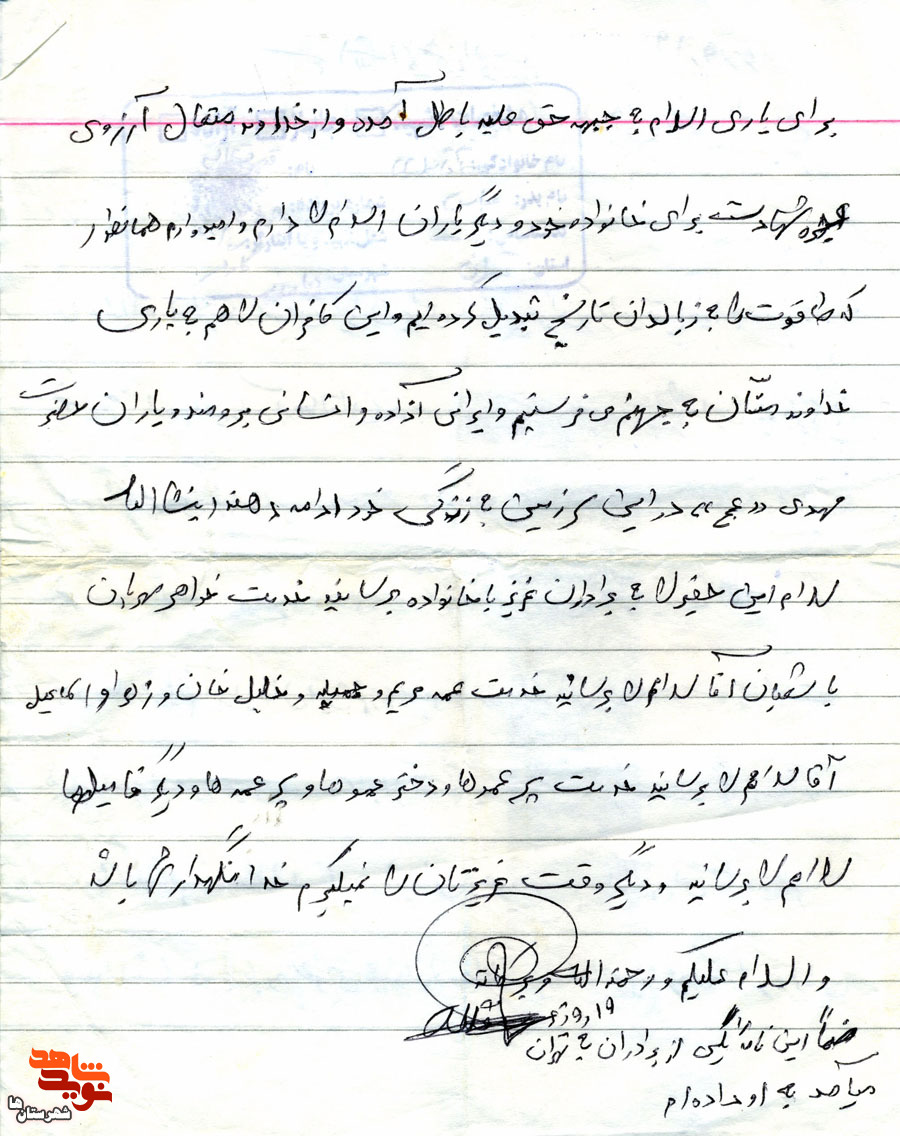 برای یاری اسلام به جبهه حق علیه باطل آمده و از خداوند متعال آرزوی
شهادت برای خانواده خود و دیگر یاران اسلام را دارم و امیدوارم همانطور
که طاقوت را به زبالدان تاریخ تبدیل کرده ایم و این کافران را هم به یاری
خداوند منّان به جهنم می فرستیم و ایرانی آزاده و انسانی برومند و یاران حضرت
مهدی «عج» در این سرزمین به زندگی خود ادامه دهند اینشاالله
سلام این حقیر را به برادران عزیز با خانواده برسانید خدمت خواهر مهربان
با شعبان آقا سلام را برسانید خدمت عمه مریم و جمیله و خلیل خان و زهرا و اسماعیل
آقا سلام را برسانید خدمت پسر عموها و دختر عموها و پسر عمه ها و دیگر فامیلها
سلام را برسانید و دیگر وقت عزیزتان را نمیگیرم خدا نگهدار شما باشد
و السلام علیکم و رحمة الله و برکاته
ضمناً این نامه یکی از برادران به تهران
میآمد به او داده ام
نوید شاهد
شهرستان‌ها